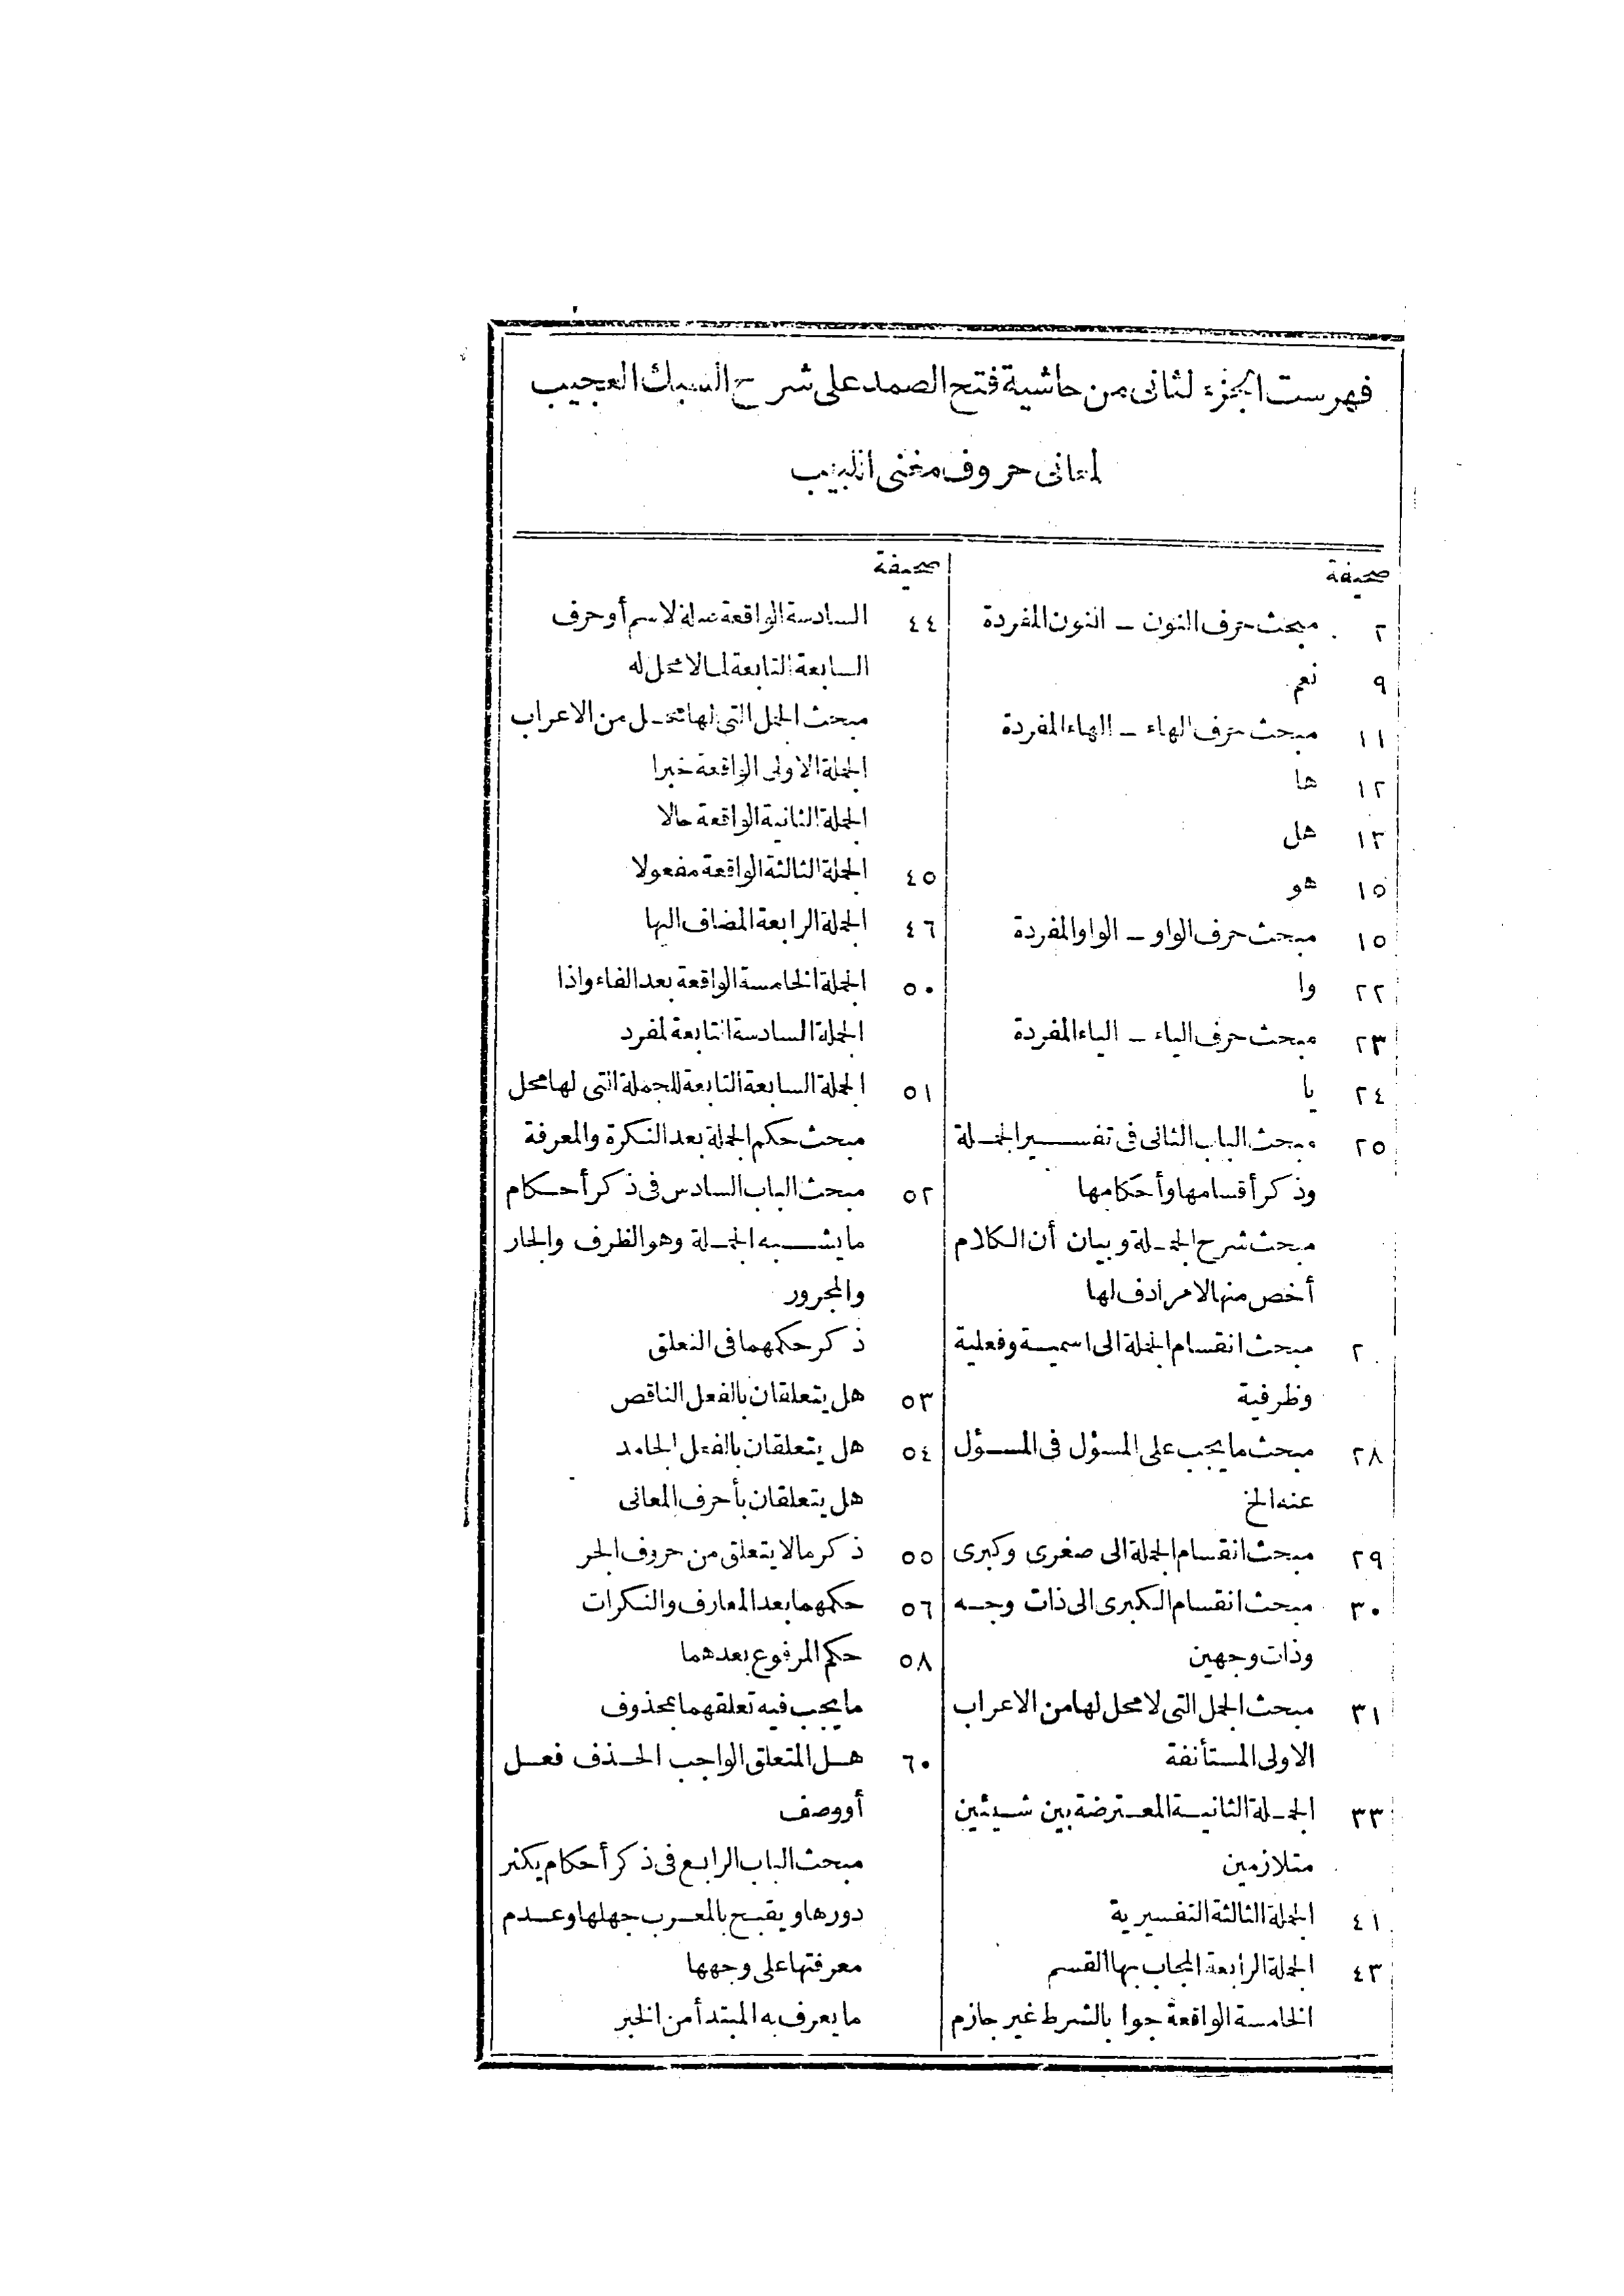 فهرست الجزء الثانى من حاشية فتح الصمد على شرح السبك العجيب
لمعانى حروف مغنى اللبيب
صحيفة
٢ مبحث حرف النون ــ النون المفردة
٩ نعم
١١ مبحث حرف الهاء ــ الهاء المفردة
١٢ ها
١٣ هل
١٥ هو
١٥ مبحث حرف الواو ــ الواو المفردة
٢٢ وا
٢٣ مبحث حرف الياء ــ الياء المفردة
٢٤ يا
٢٥ مبحث الباب الثانى فى تفسير الجملة
وذكر أقسامها وأحكامها
مبحث شرح الجملة وبيان أن الكلام
أخص منها لا مرادف لها
مبحث انقسام الجملة الى اسمية وفعلية
وظرفية
٢٨ مبحث ما يجب على المسؤل فى المسؤل
عنه الخ
٢٩ مبحث انقسام الجملة الى صغرى وكبرى
٣٠ مبحث انقسام الكبرى الى ذات وجه
وذات وجهين
٣١ مبحث الجمل التى لا محل لها من الاعراب
الاولى المستأنفة
٣٣ الجملة الثانية المعترضة بين شيئين
متلازمين
٤١ الجملة الثالثة التفسيرية
٤٣ الجملة الرابعة المجاب بها القسم
الخامسة الواقعة جوابا لشرط غير جازم
صحيفة
٤٤ السادسة الواقعة صلة لاسم أو حرف
السابعة التابعة لما لا محل له
مبحث الجمل التى لها محل من الاعراب
الجملة الاولى الواقعة خبرا
الجملة الثانية الواقعة حالا
٤٥ الجملة الثالثة الواقعة مفعولا
٤٦ الجملة الرابعة المضاف اليها
٥٠ الجملة الخامسة الواقعة بعد الفاء واذا
الجملة السادسة التابعة لمفرد
٥١ الجملة السابعة التابعة للجملة التى لها محل
مبحث حكم الجملة بعد النكرة والمعرفة
٥٢ مبحث الباب السادس فى ذكر أحكام
ما يشبه الجملة وهو الظرف والجار
والمجرور
ذكر حكمهما فى التعلق
٥٣ هل يتعلقان بالفعل الناقص
٥٤ هل يتعلقان بالفعل الجامد
هل يتعلقان بأحرف المعانى
٥٥ ذكر ما لا يتعلق من حروف الجر
٥٦ حكمهما بعد المعارف والنكرات
٥٨ حكم المرفوع بعدهما
ما يجب فيه تعلقهما بمحذوف
٦٠ هل المتعلق الواجب الحذف فعل
أو وصف
مبحث الباب الرابع فى ذكر أحكام يكثر
دورها ويقبح بالمعرب جهلها وعدم
معرفتها على وجهها
ما يعرف به المبتدأ من الخبر